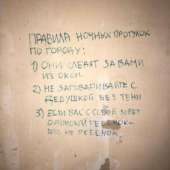 ПРАВИЛА НОЧНЫХ ПРОГУЛОК
ПО ГОРОДУ:
1) ОНИ СЛЕДЯТ ЗА ВАМИ
ИЗ ОКОН.
2) НЕ ЗАГОВАРИВАЙТЕ С
ДЕДУШКОЙ БЕЗ ТЕНИ
3) ЕСЛИ ВАС
ОДИНОКИЙ РЕБЕНОК
ЭТО НЕ РЕБЕНОК